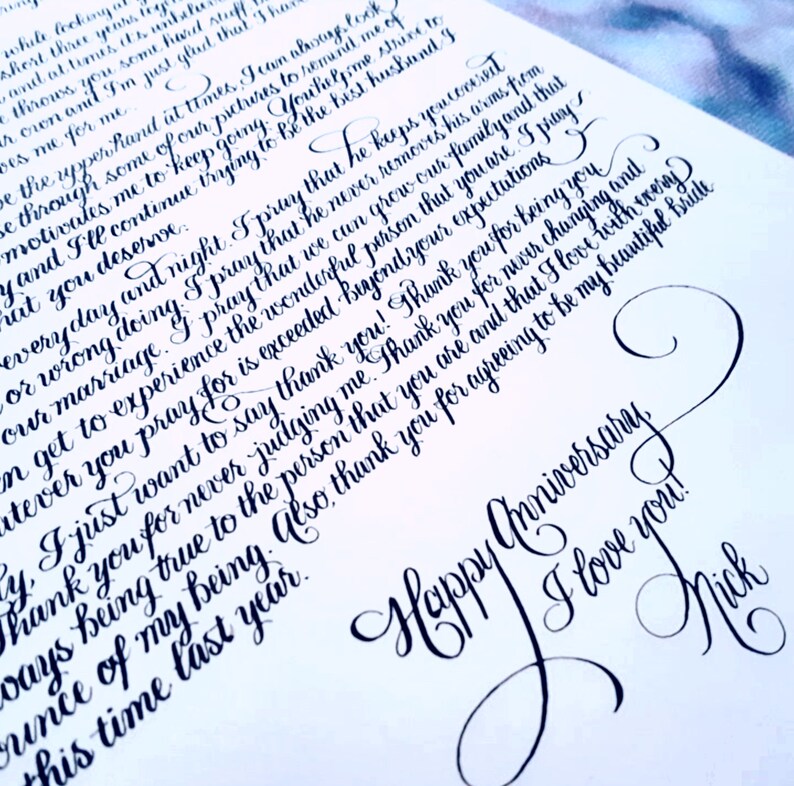 while looking at
short three years
and at times it's
throws you some hard stuff
own and I'm just glad that I have
me for me.
the upperhand at times, I can always look
through some of our pictures to remind me of
motivates me to keep going. You help me strive to
and I'll continue trying to be the best husband I
that you deserve.
everyday and night. I pray that he keeps you covered
or wrong doing. I pray that he never removes his arms from
our marriage. I pray that we can grow our family and that
get to experience the wonderful person that you are. I pray
whatever you pray for is exceeded beyond your expectations
ly, I just want to say thank you! Thank you for being you
Thank you for never judging me. Thank you for never changing and
ways being true to the person that you are and that I love with every
ounce of my being. Also, thank you for agreeing to be my beautiful bride
this time last year.
Happy Anniversary,
I love you!
Nick